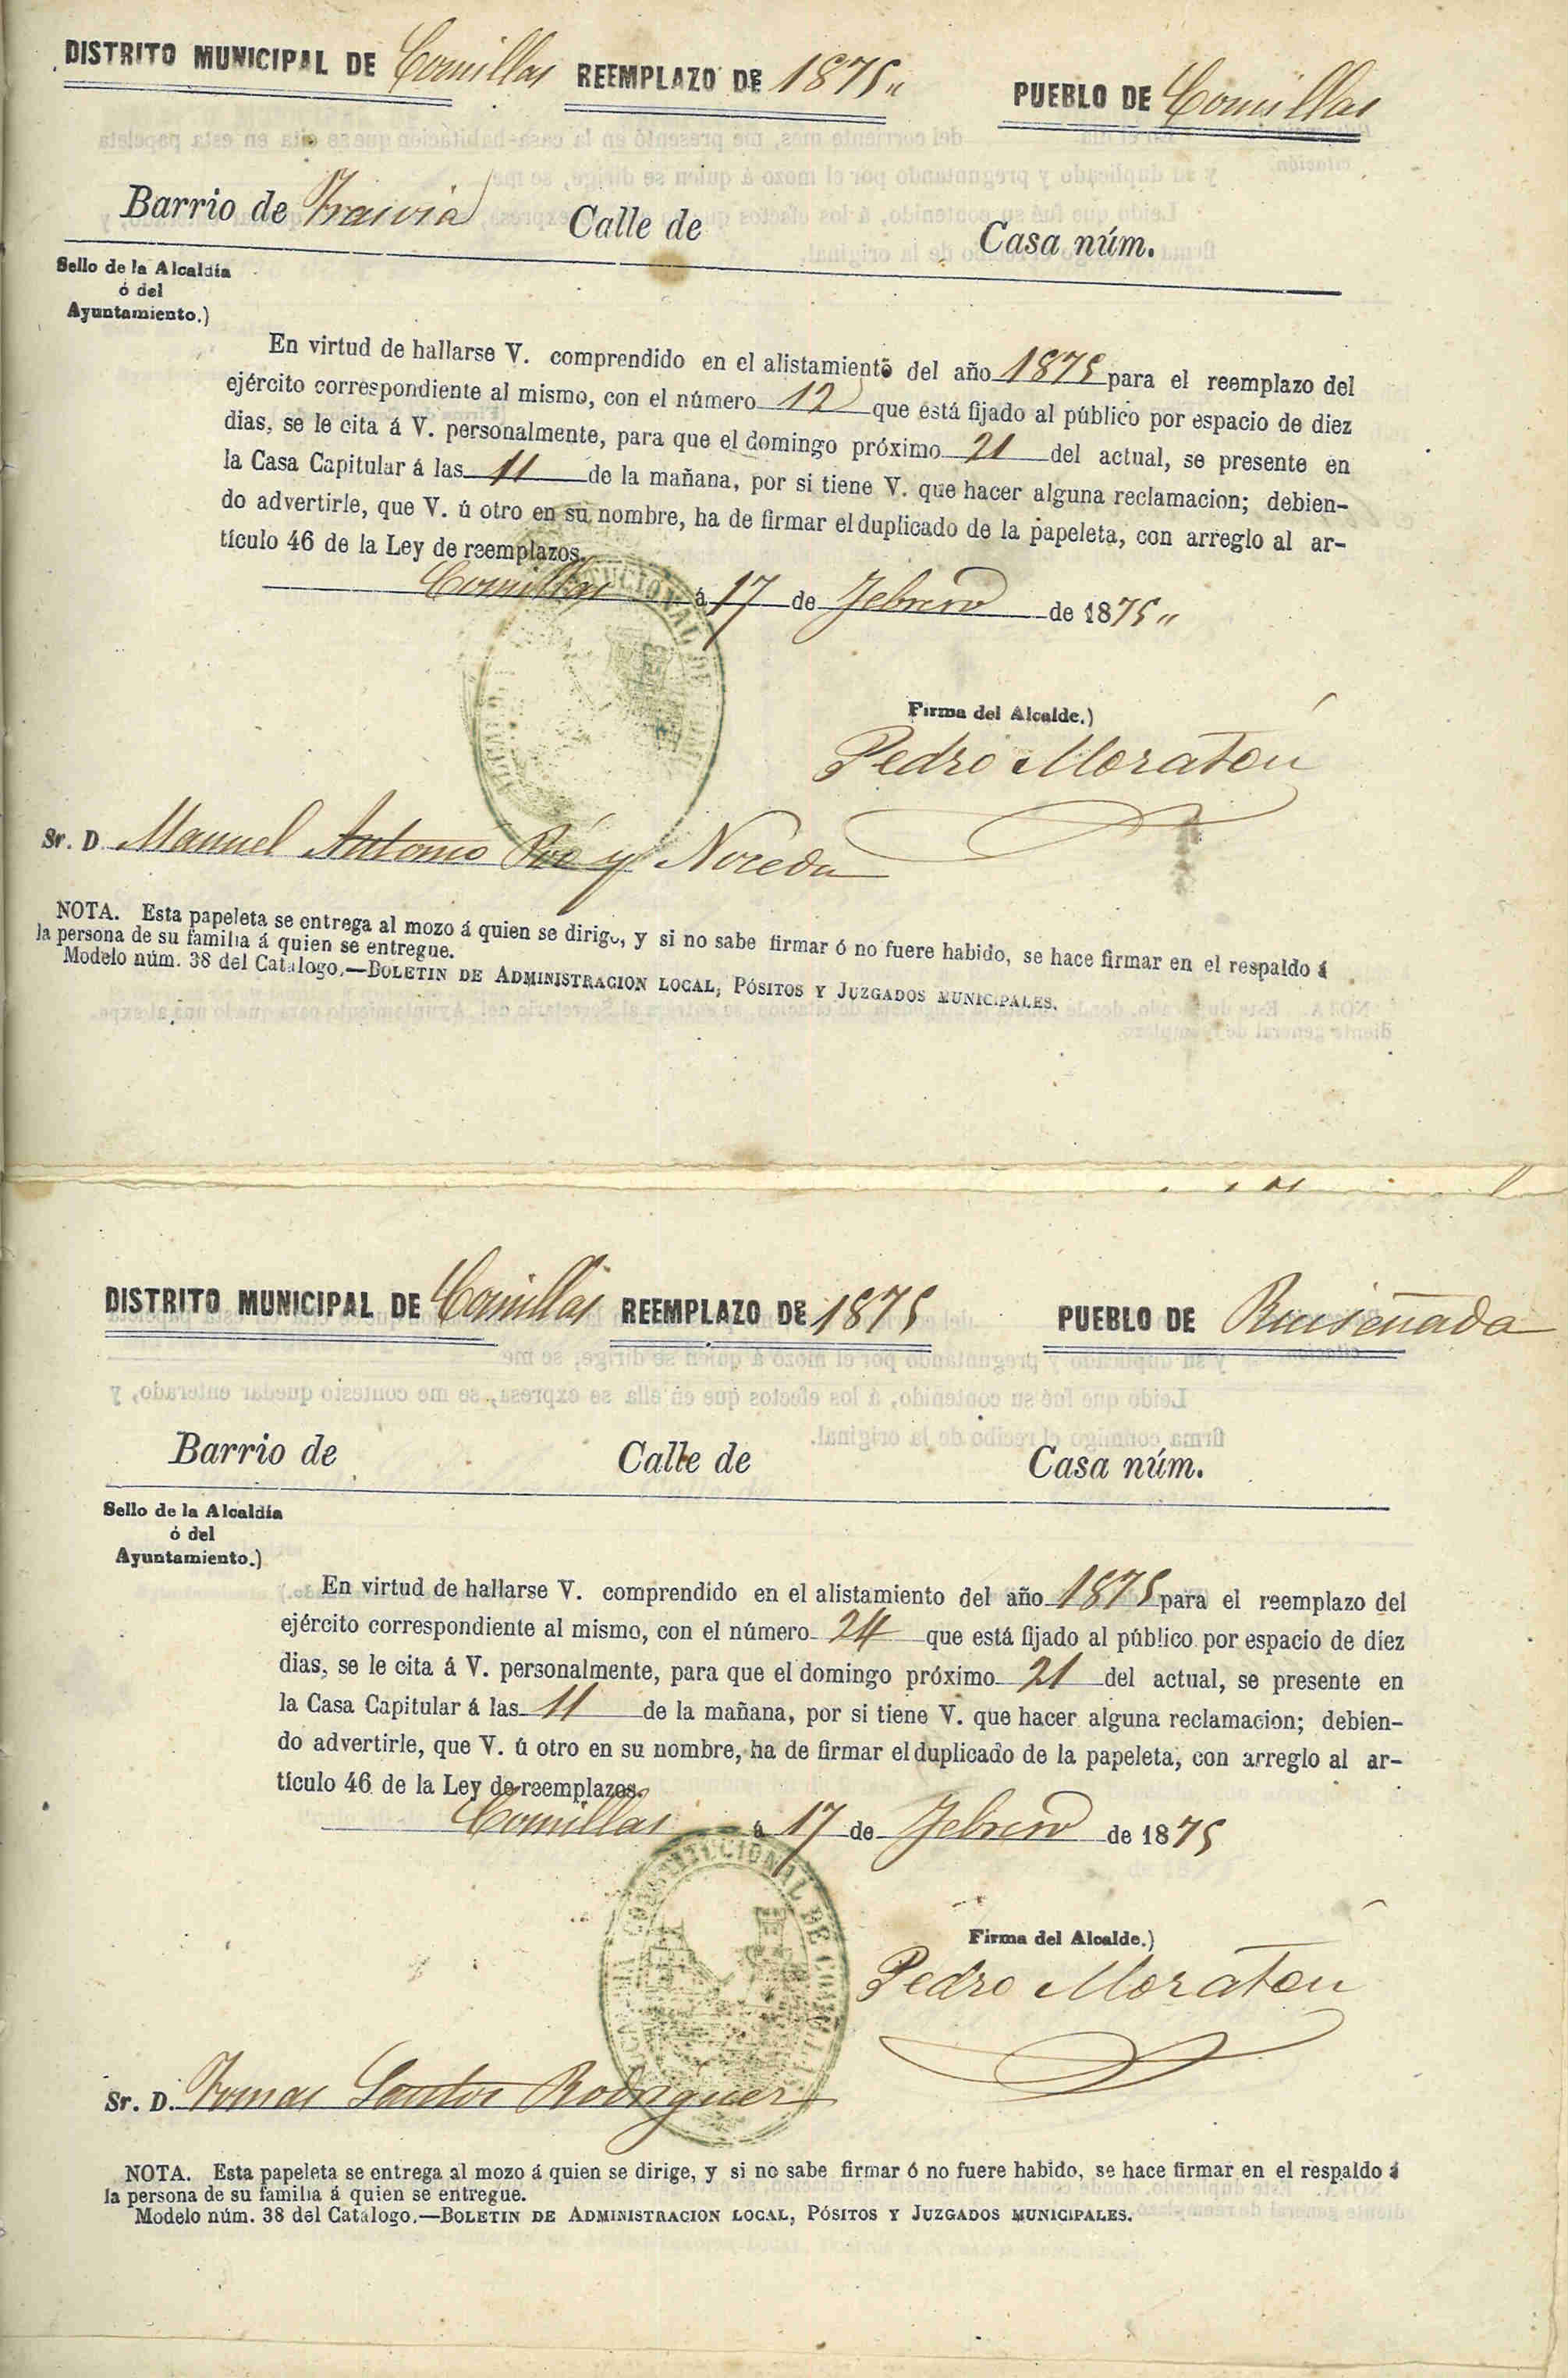 DISTRITO MUNICIPAL DE Comillas REEMPLAZO DE 1875 PUEBLO DE Comillas
Barrio de Trasvia Calle de Casa núm.
Sello de la Alcaldía
ó del
Ayuntamiento.)
En virtud de hallarse V. comprendido en el alistamiento del año 1875 para el reemplazo del
ejército correspondiente al mismo, con el número 12 que está fijado al público por espacio de diez
dias, se le cita á V. personalmente, para que el domingo próximo 21 del actual, se presente en
la Casa Capitular á las 11 de la mañana, por si tiene V. que hacer alguna reclamacion; debien-
do advertirle, que V. ú otro en su nombre, ha de firmar el duplicado de la papeleta, con arreglo al ar-
tículo 46 de la Ley de reemplazos.
Comillas á 17 de Febrero de 1875
Firma del Alcalde.)
Pedro Moraton
Sr. D. Manuel Antonio y Noceda
NOTA. Esta papeleta se entrega al mozo á quien se dirige, y si no sabe firmar ó no fuere habido, se hace firmar en el respaldo á
la persona de su familia á quien se entregue.
Modelo núm. 38 del Catálogo.—BOLETIN DE ADMINISTRACION LOCAL, PÓSITOS Y JUZGADOS MUNICIPALES.
DISTRITO MUNICIPAL DE Comillas REEMPLAZO DE 1875 PUEBLO DE Ruiseñada
Barrio de Calle de Casa núm.
Sello de la Alcaldía
ó del
Ayuntamiento.)
En virtud de hallarse V. comprendido en el alistamiento del año 1875 para el reemplazo del
ejército correspondiente al mismo, con el número 24 que está fijado al público por espacio de diez
dias, se le cita á V. personalmente, para que el domingo próximo 21 del actual, se presente en
la Casa Capitular á las 11 de la mañana, por si tiene V. que hacer alguna reclamacion; debien-
do advertirle, que V. ú otro en su nombre, ha de firmar el duplicado de la papeleta, con arreglo al ar-
tículo 46 de la Ley de reemplazos.
Comillas á 17 de Febrero de 1875
CONSTITUCIONAL DE COMILLAS
Firma del Alcalde.)
Pedro Moraton
Sr. D. Tomas Santos Rodriguez
NOTA. Esta papeleta se entrega al mozo á quien se dirige, y si no sabe firmar ó no fuere habido, se hace firmar en el respaldo á
la persona de su familia á quien se entregue.
Modelo núm. 38 del Catálogo.—BOLETIN DE ADMINISTRACION LOCAL, PÓSITOS Y JUZGADOS MUNICIPALES.